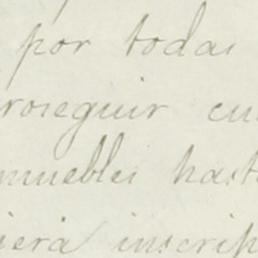 por todas
roseguir cu
muebles hast
iera inscrip